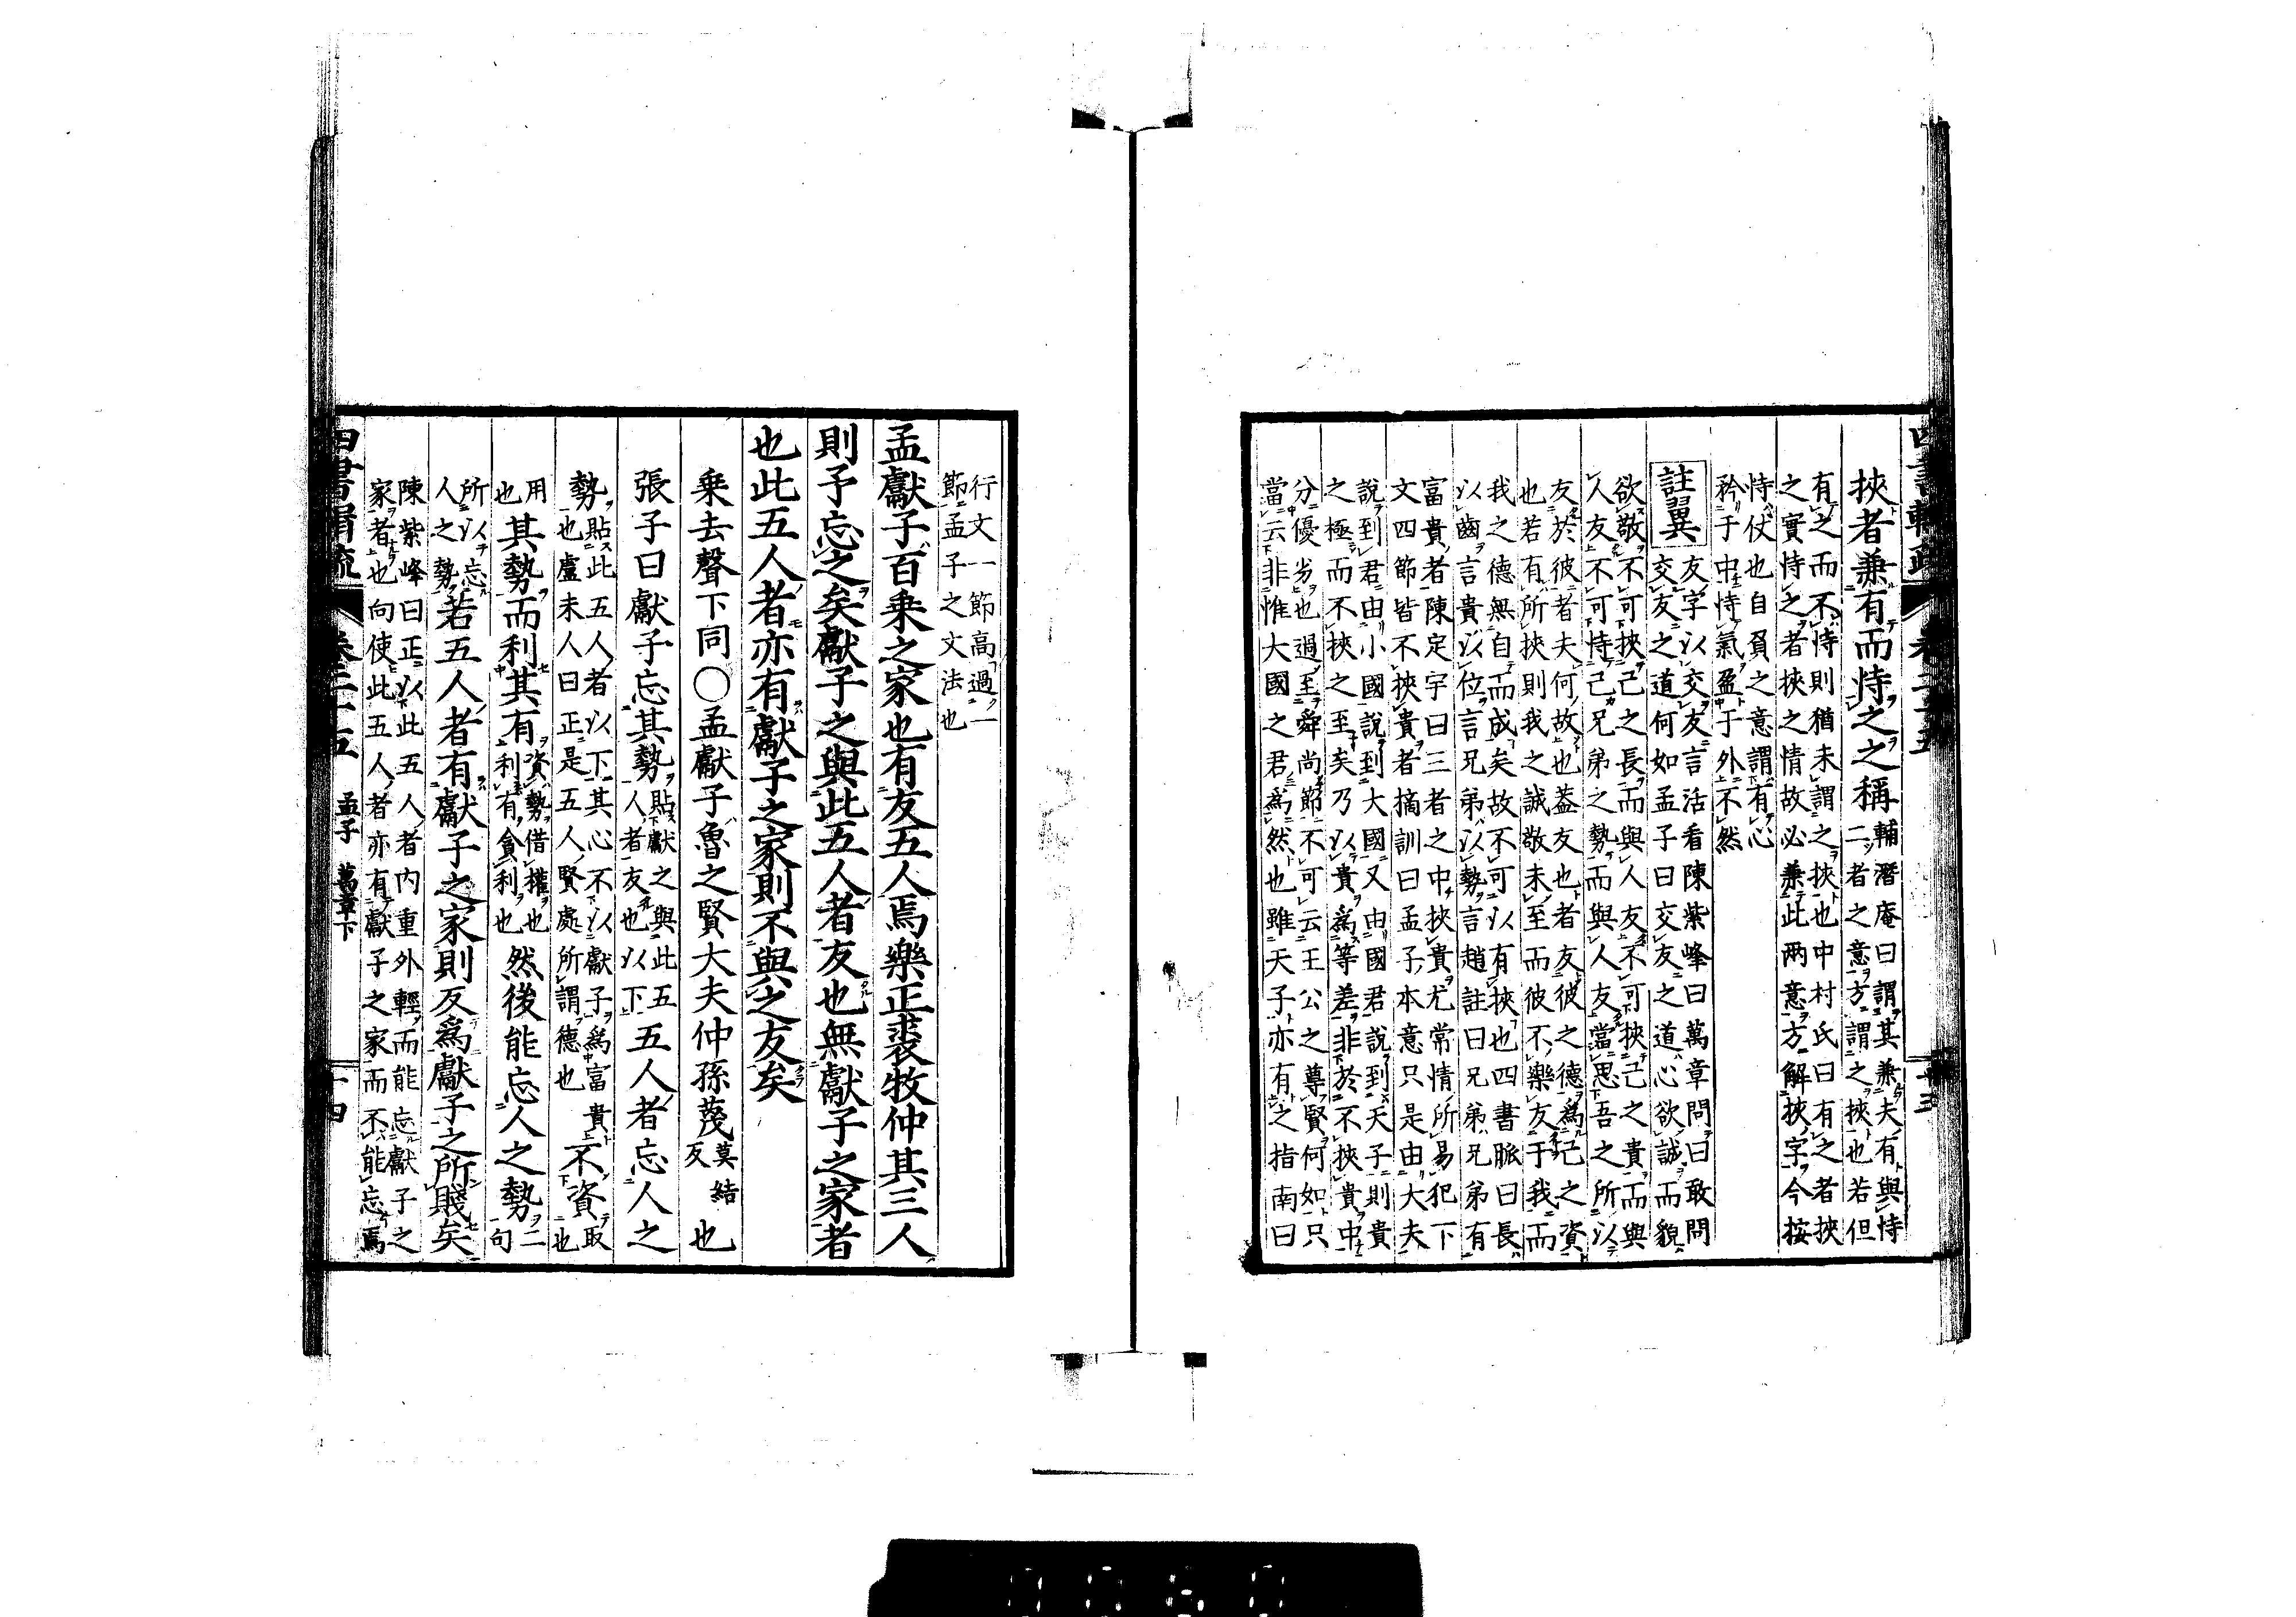 挾者兼有而恃之之稱
輔潛庵曰謂其兼夫有與恃
二者之意方謂之挾也若但
有之而不恃則猶未謂之挾也中村氏曰有之者挾
之實恃之者挾之情故必兼此兩意方解挾字今按
恃仗也自負之意謂有心
矜于中恃氣盈于外不然
註翼
友字以交友言活看陳紫峰曰萬章問曰敢問
交友之道何如孟子曰交友之道心欲誠而貌
欲敬不可挾己之長而與人友不可挾己之貴而與
人友不可恃己兄弟之勢而與人友當思吾之所以
友於彼者夫何故也蓋友也者友彼之德為己之資
也若有所挾則我之誠敬未至而彼不樂友于我而
我之德無自而成矣故不可以有挾也四書脈曰長
以齒言貴以位言兄弟以勢言趙註曰兄弟兄弟有
富貴者陳定宇曰三者之中挾貴尤常情所易犯下
文四節皆不挾貴者摘訓曰孟子本意只是由大夫
說到君由小國說到大國又由國君說到天子則貴
之極而不挾之至矣乃以貴為等差非於不挾貴中
分優劣也過至舜尚節不可云王公之尊賢何如只
當云非惟大國之君為然也雖天子亦有之指南曰
行文一節高過一
節孟子之文法也
孟獻子百乘之家也有友五人焉樂正裘牧仲其三人
則予忘之矣獻子之與此五人者友也無獻子之家者
也此五人者亦有獻子之家則不與之友矣
乘去聲下同○孟獻子魯之賢大夫仲孫蔑
莫結
反
也
張子曰獻子忘其勢
貼獻之與此五
人者友也以下
五人者忘人之
勢
貼此五人者以下其心不以獻子為富貴
也盧未人曰正是五人賢處所謂德也
不資
取
也
用
也
其勢而利其有
資勢借權也
利有貪利也
然後能忘人之勢
二
句
所以忘
人之勢
若五人者有獻子之家則反為獻子之所賤矣
陳紫峰曰正以此五人者內重外輕而能忘獻子之
家者也向使此五人者亦有獻子之家而不能忘焉
孟子 萬章下